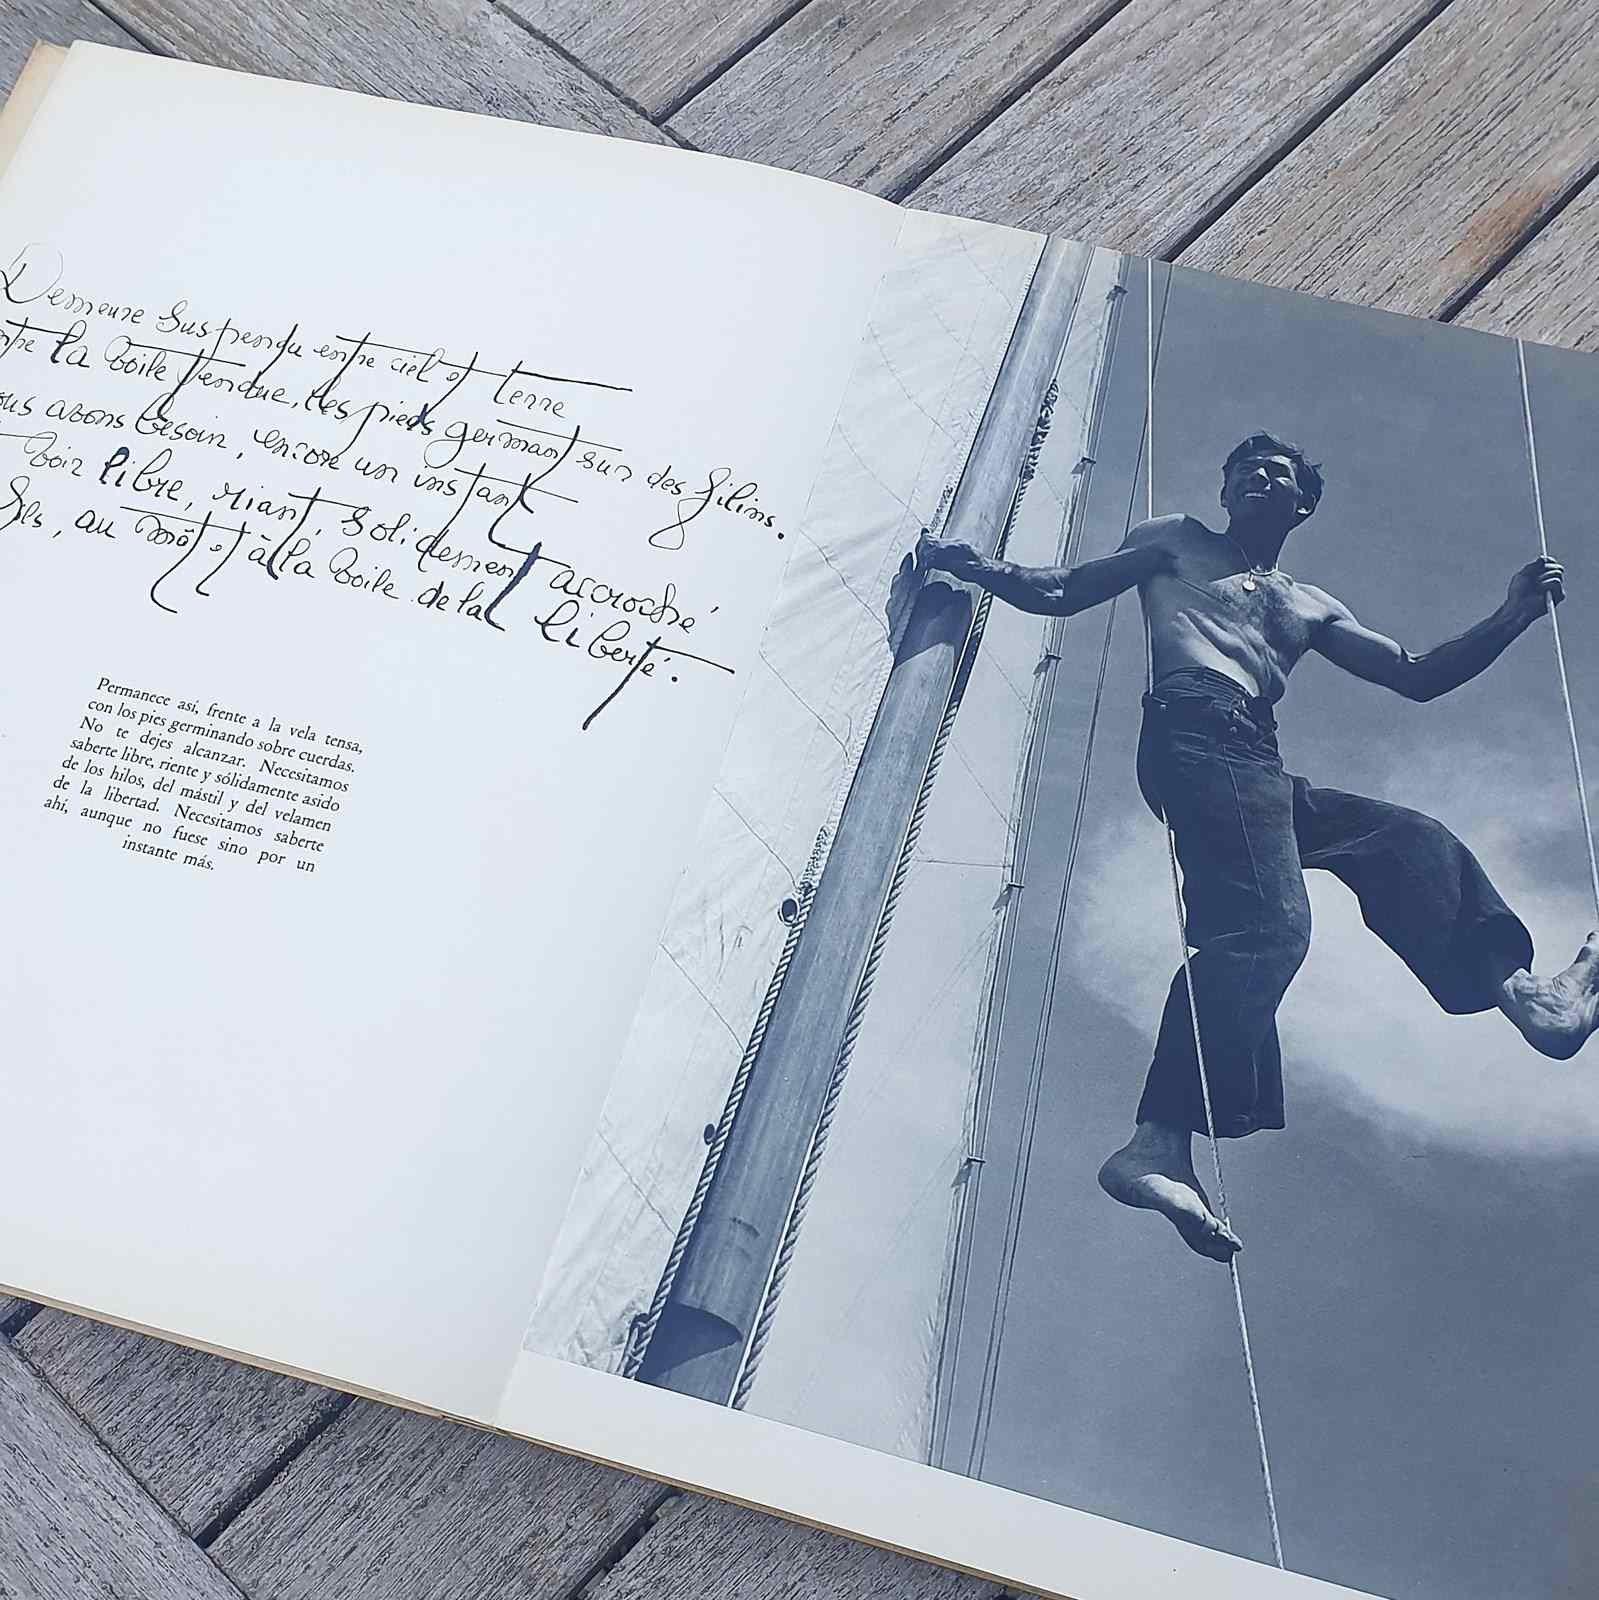 Demeure suspendu entre ciel et terre
la voile tendue, les pieds germant sur des filins.
avons besoin, encore un instant
voir libre, riant, solidement accroché
au mât et à la voile de la liberté.
Permanece así, frente a la vela tensa,
con los pies germinando sobre cuerdas.
No te dejes alcanzar. Necesitamos
saberte libre, riente y sólidamente asido
de los hilos, del mástil y del velamen
de la libertad. Necesitamos saberte
ahí, aunque no fuese sino por un
instante más.